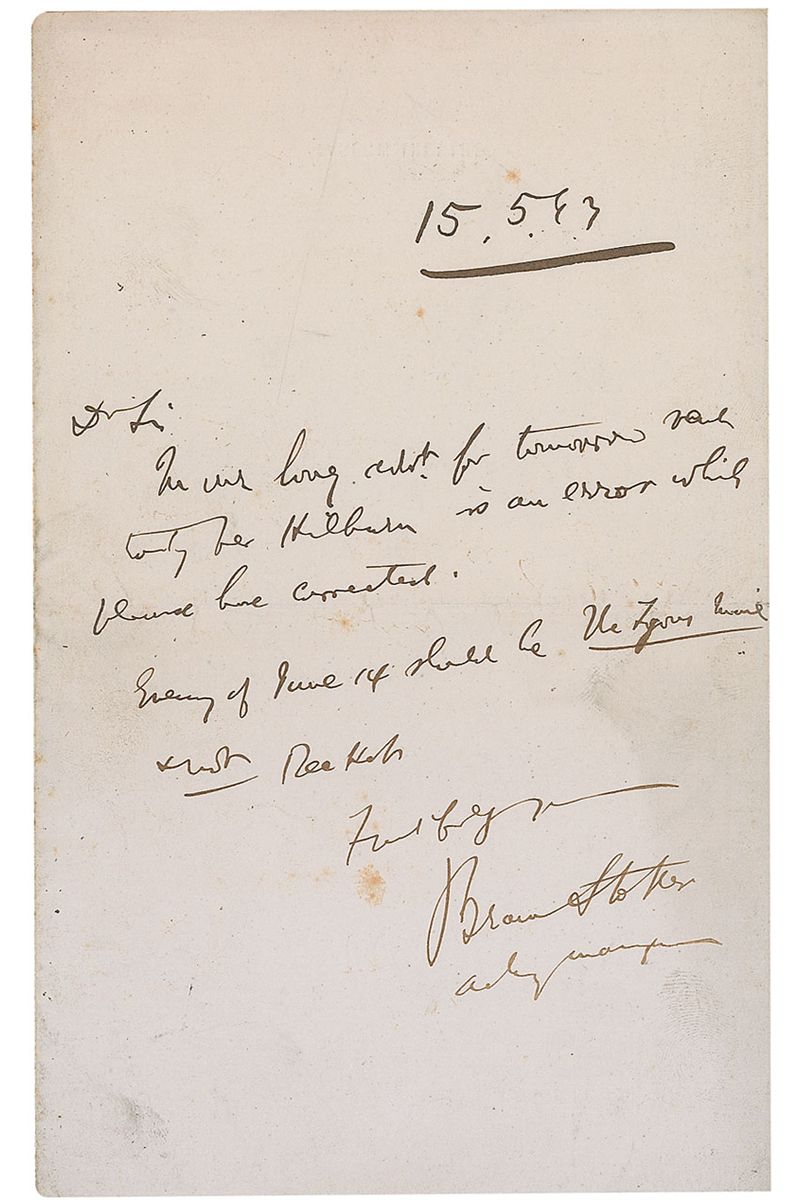 15.5.83
Dr Sir
In our long advt. for tomorrow sent
by Kilburn is an error which
please have corrected.
Evening of June 14 should be The Lyons Mail
& not Macbeth
Faithfully yrs
Bram Stoker
acting manager